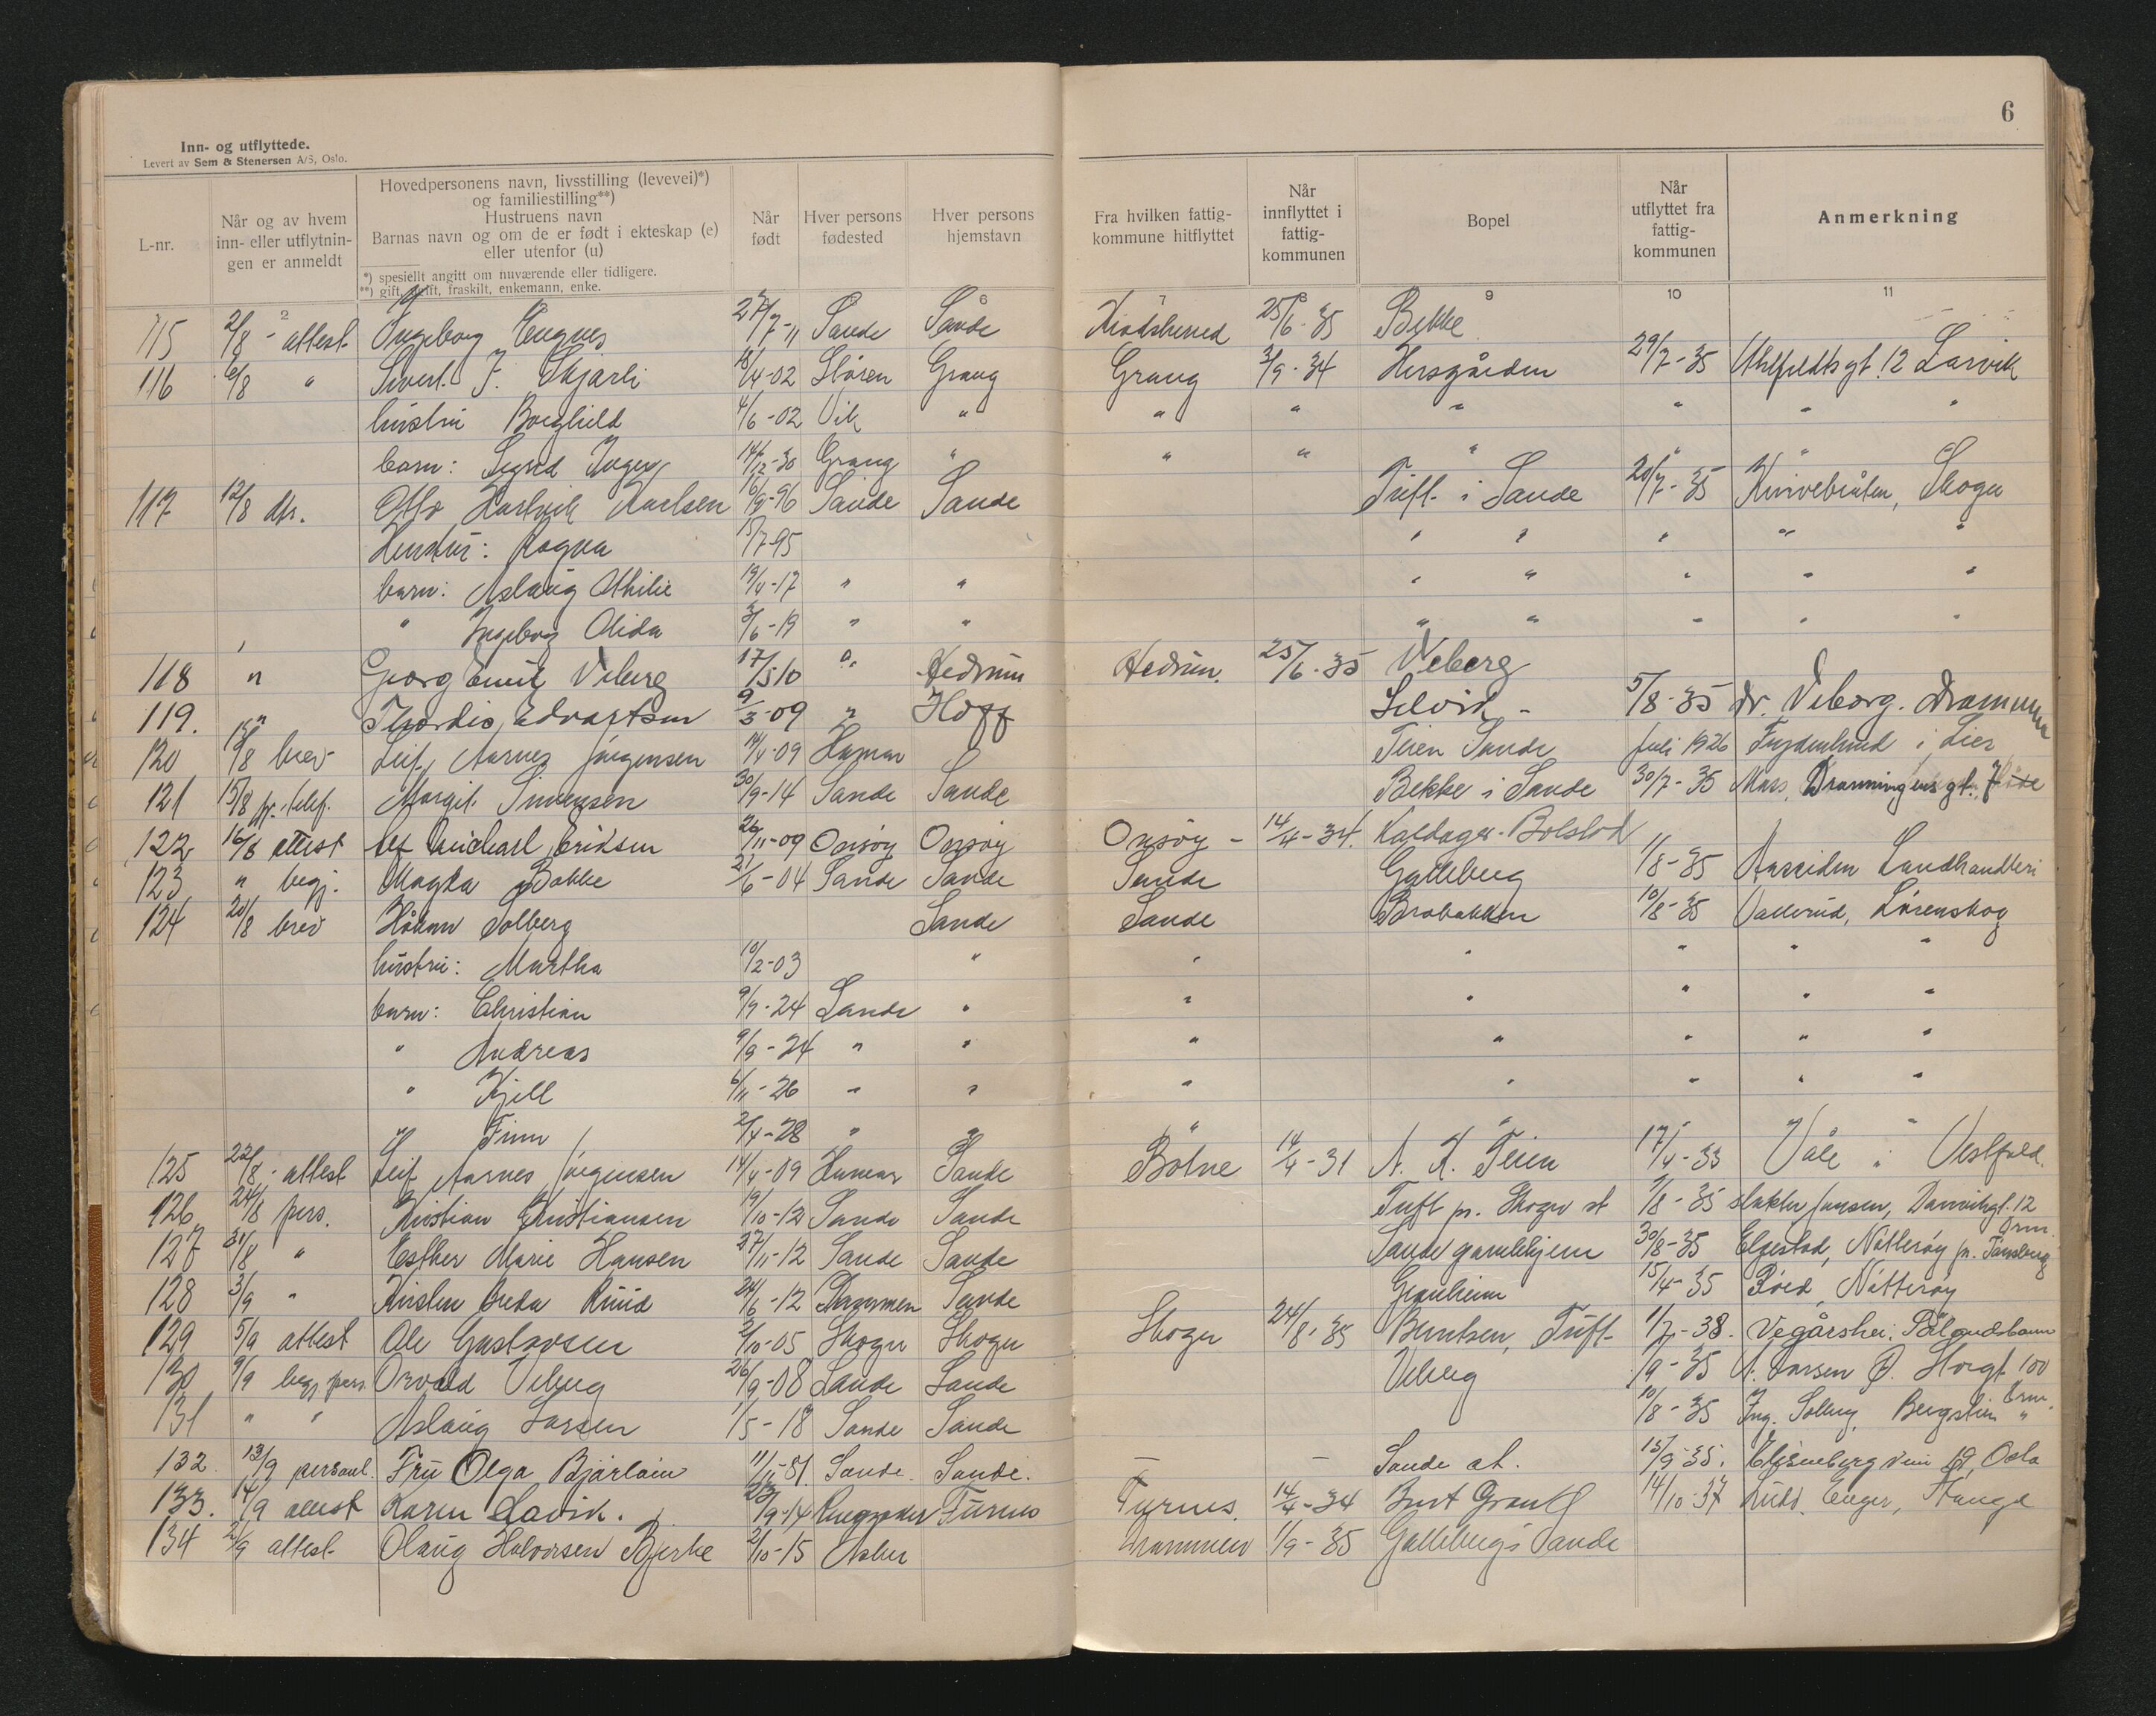 Inn- og utflyttede.
Levert av Sem & Stenersen A/S, Oslo.
6
L-nr.
Når og av hvem inn- eller utflytnin- gen er anmeldt
Hovedpersonens navn, livsstilling (levevei)*)
og familiestilling**)
Hustruens navn
Barnas navn og om de er født i ekteskap (e)
eller utenfor (u)
*) spesiellt angitt om nuværende eller tidligere.
**) gift, ugift, fraskilt, enkemann, enke.
Når født
Hver persons fødested
Hver persons hjemstavn
Fra hvilken fattig- kommune hitflyttet
Når innflyttet i fattig- kommunen
Bopel
Når utflyttet fra fattig- kommunen
Anmerkning
2 6 7 8 9 10 11
115 2/8 - attest Ingeborg Engnes 27/7-11 Sande Sande Krødsherred 25/6-35 Bekke
116 6/8 " Sivert J. Skjærli 18/4-02 Støren Grong Grong 3/9-34 Hersgården 29/7-35 12 Larvik
hustru Borghild 4/6-02 Vik " " " " " " "
barn: Sigrid Inger 14/12-30 Grong " " " " " "
117 12/8 dfs. Otto Hartvik Karlsen 16/9-96 Sande Sande Tuft i Sande 20/7-35 Knivebråten, Skoger
Hustru: Ragna 15/7-95 " " " " "
barn: Aslaug Othilie 19/4-17 " " " " " " "
" Ingeborg Alida 3/6-19 " " " " " " "
118 " Georg Emil Viberg 17/5 10 " Hedrum Hedrum. 25/6-35 Veberg
119. " Thordis Edvartsen 9/3-09 " Hoff Selvik - 5/8-35 dr. Viborg. Drammen
120 13/8 brev Leif Aarnes Jørgensen 14/4-09 Hamar Teien Sande Juli 1926 Frydenlund i Lier
121 15/8 pr. telef. Margit Simensen 30/9-14 Sande Sande Bekke i Sande 30/7-35 Moss, Dronningensgt. 7
122 16/8 attest Michael Eriksen 26/11-09 Onsøy Onsøy Onsøy - 14/4-34. Kaldager-Bolstad
123 " begj. Magda Bakke 21/6-04 Sande Sande Sande Galleberg 1/8-35 Landhandleri
124 20/8 brev Håkon Solberg Sande Sande Brobakken 10/8-35 Vallerud, Lørenskog
hustru: Martha 10/2-03 " " " " " "
barn: Christian 9/9-24 Sande " " " " " "
" Andreas 9/9-24 " " " " " " "
" Kjell 6/11-26 " " " " " " "
" Finn 2/4-28 " " " " " "
125 22/8 - attest Leif Aarnes Jørgensen 14/4-09 Hamar Sande Botne 14/4-31 A. K. Teien 17/4-33 Våle i Vestfold.
126 24/8 pers. Kristian Kristiansen 19/10-12 Sande Sande Tuft pr. Skoger st 9/8-35 slakter Jansen, Danvikgt. 12
Drm.
127 30/8 " Esther Marie Hansen 27/11-12 Sande Sande Sande gamlehjem 30/8-35 Elgestad, Nøtterøy pr. Tønsberg
128 3/9 " Kirsten Greda Ruud 24/6-12 Drammen Sande Granheim 15/4-35 Føed, Nøtterøy
129 5/9 attest Ole Gustavsen 2/10-05 Skoger Skoger Skoger 24/8-35 Berntsen, Tuft 1/7-38. Vegårshei.
130 9/9 begj. pers Orvald Viberg 26/9-08 Sande Sande Viberg /9-35 A. Larsen Ø. Storgt. 100
Drm.
131 " " Aslaug Larsen 1/5-18 Sande Sande 10/8-35 Ing. Solberg, Bergstien "
132 13/9 personl. Fru Olga Bjärlain 11/11-81. Sande. Sande. — — Sande st. 15/9-35. Elisenbergveien 19, Oslo
133. 14/9 attest Karen Lavik. 23/9-14 Ringsaker Furnes Furnes. 14/4-34 Berit Grant 14/10-37 Ludv. Enger, Stange
134 2/9 attest Olaug Halvorsen Bjerke 2/10-15 Asker Drammen 1/9-35 Galleberg i Sande